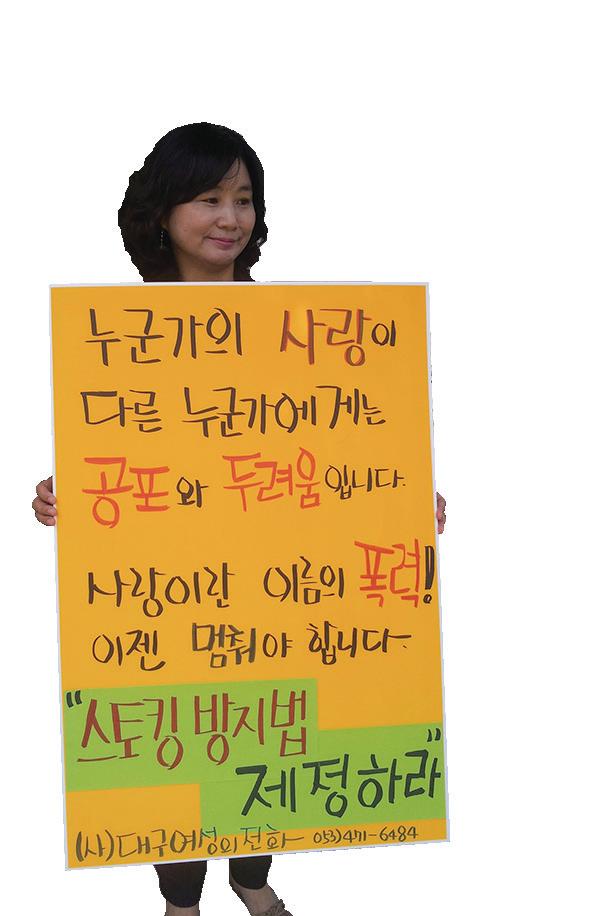 누군가의 사랑이
다른 누군가에게는
공포와 두려움입니다.
사랑이란 이름의 폭력!
이젠 멈춰야 합니다.
"스토킹 방지법
제정하라"
(사)대구여성의전화 053)471-6484